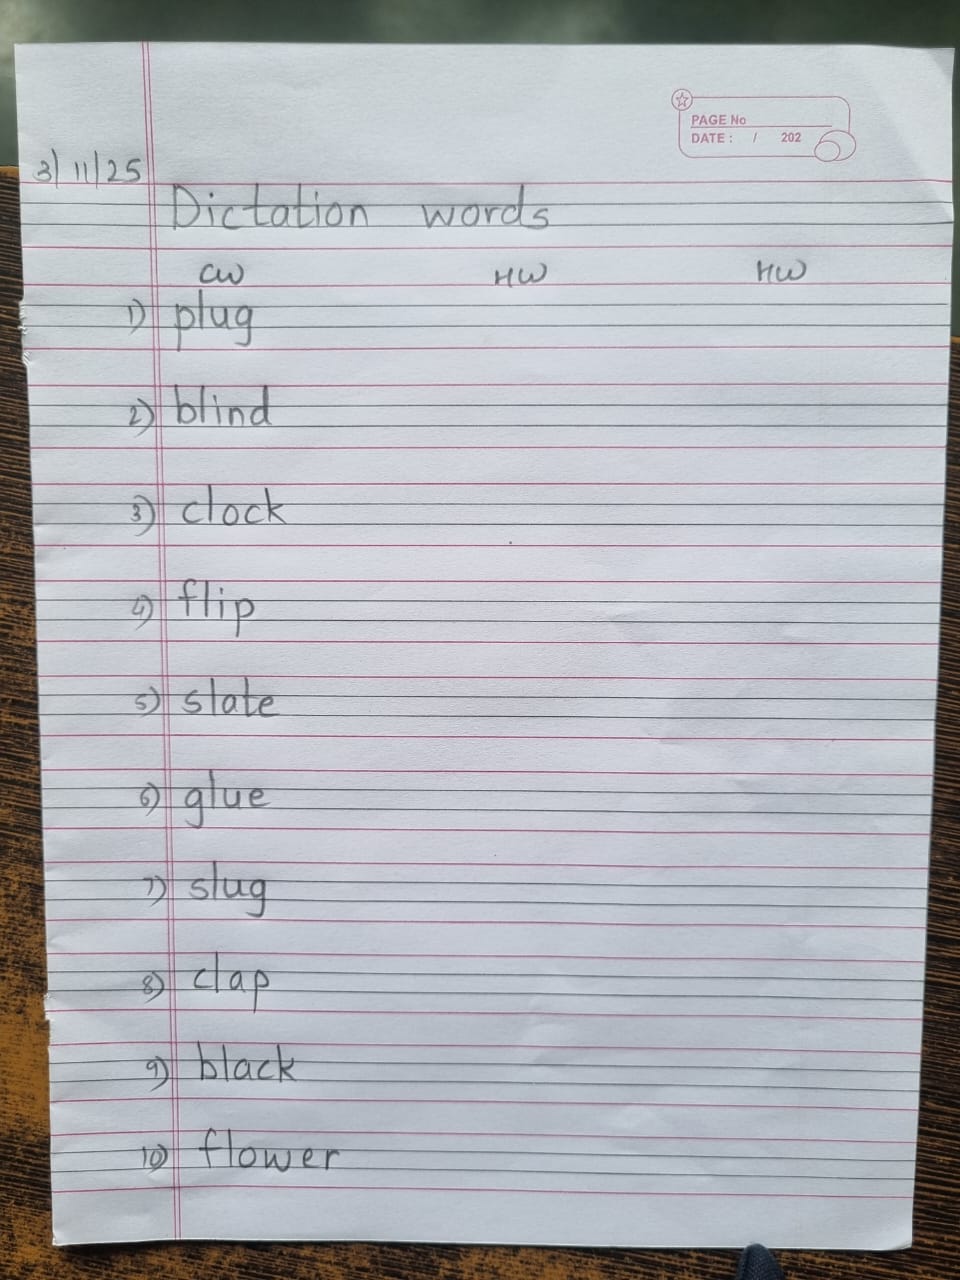 PAGE No
DATE : / 202
3/11/25
Dictation words
CW HW HW
1) plug
2) blind
3) clock
4) flip
5) slate
6) glue
7) slug
8) clap
9) black
10) flower